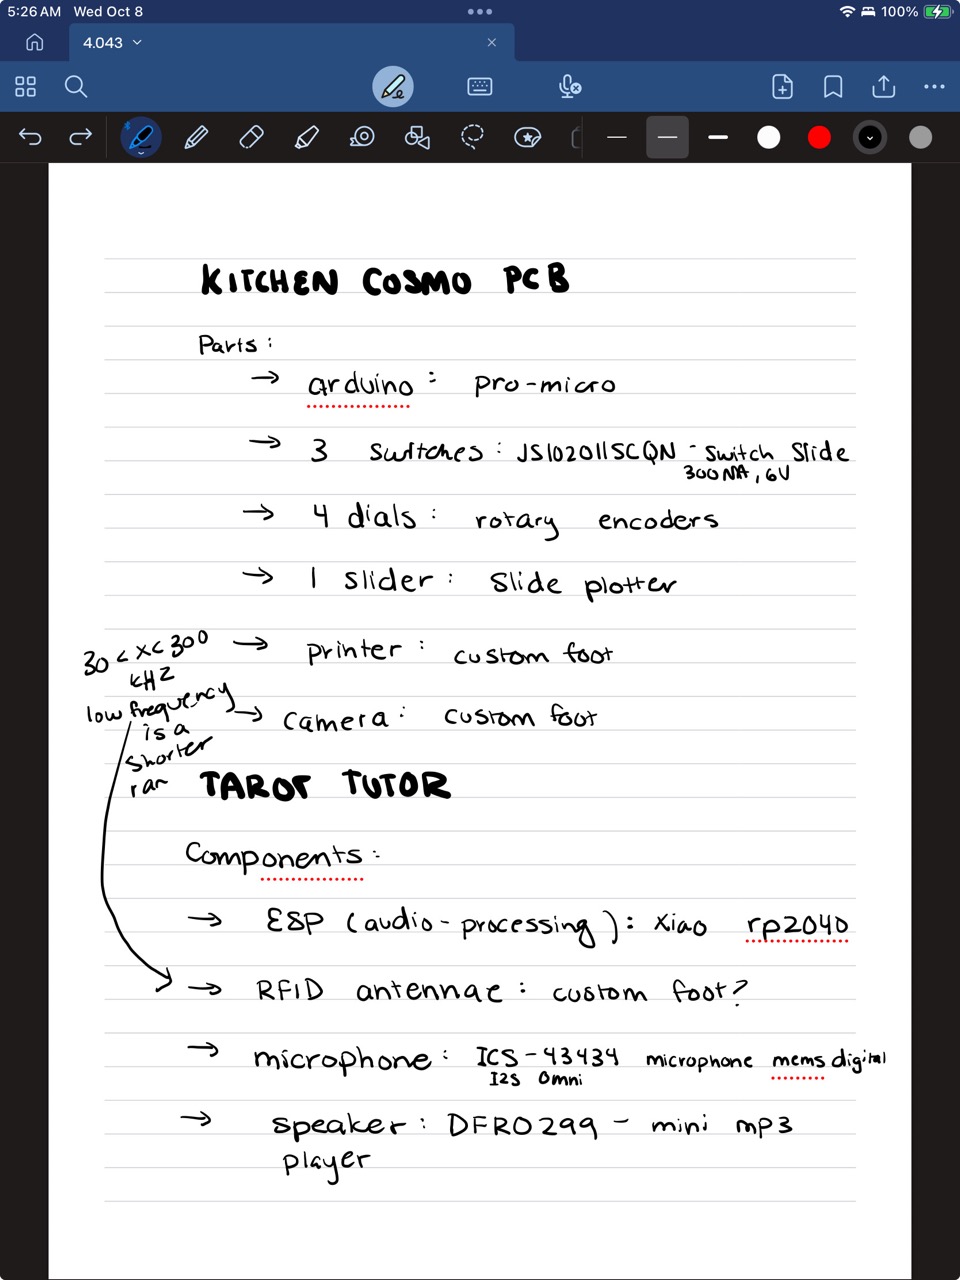 5:26 AM Wed Oct 8
100%
4.043
KITCHEN COSMO PCB
Parts:
→ arduino: pro-micro
→ 3 switches: JS102011SCQN - Switch Slide
300MA, 6V
→ 4 dials: rotary encoders
→ 1 slider: Slide plotter
→ printer: custom foot
→ camera: custom foot
30 < x < 300
kHz
low frequency
is a
shorter
ran
TAROT TUTOR
Components:
→ ESP (audio-processing): Xiao rp2040
→ RFID antennae: custom foot?
→ microphone: ICS-43434 microphone mems digital
I2S Omni
→ speaker: DFR0299 - mini mp3
player